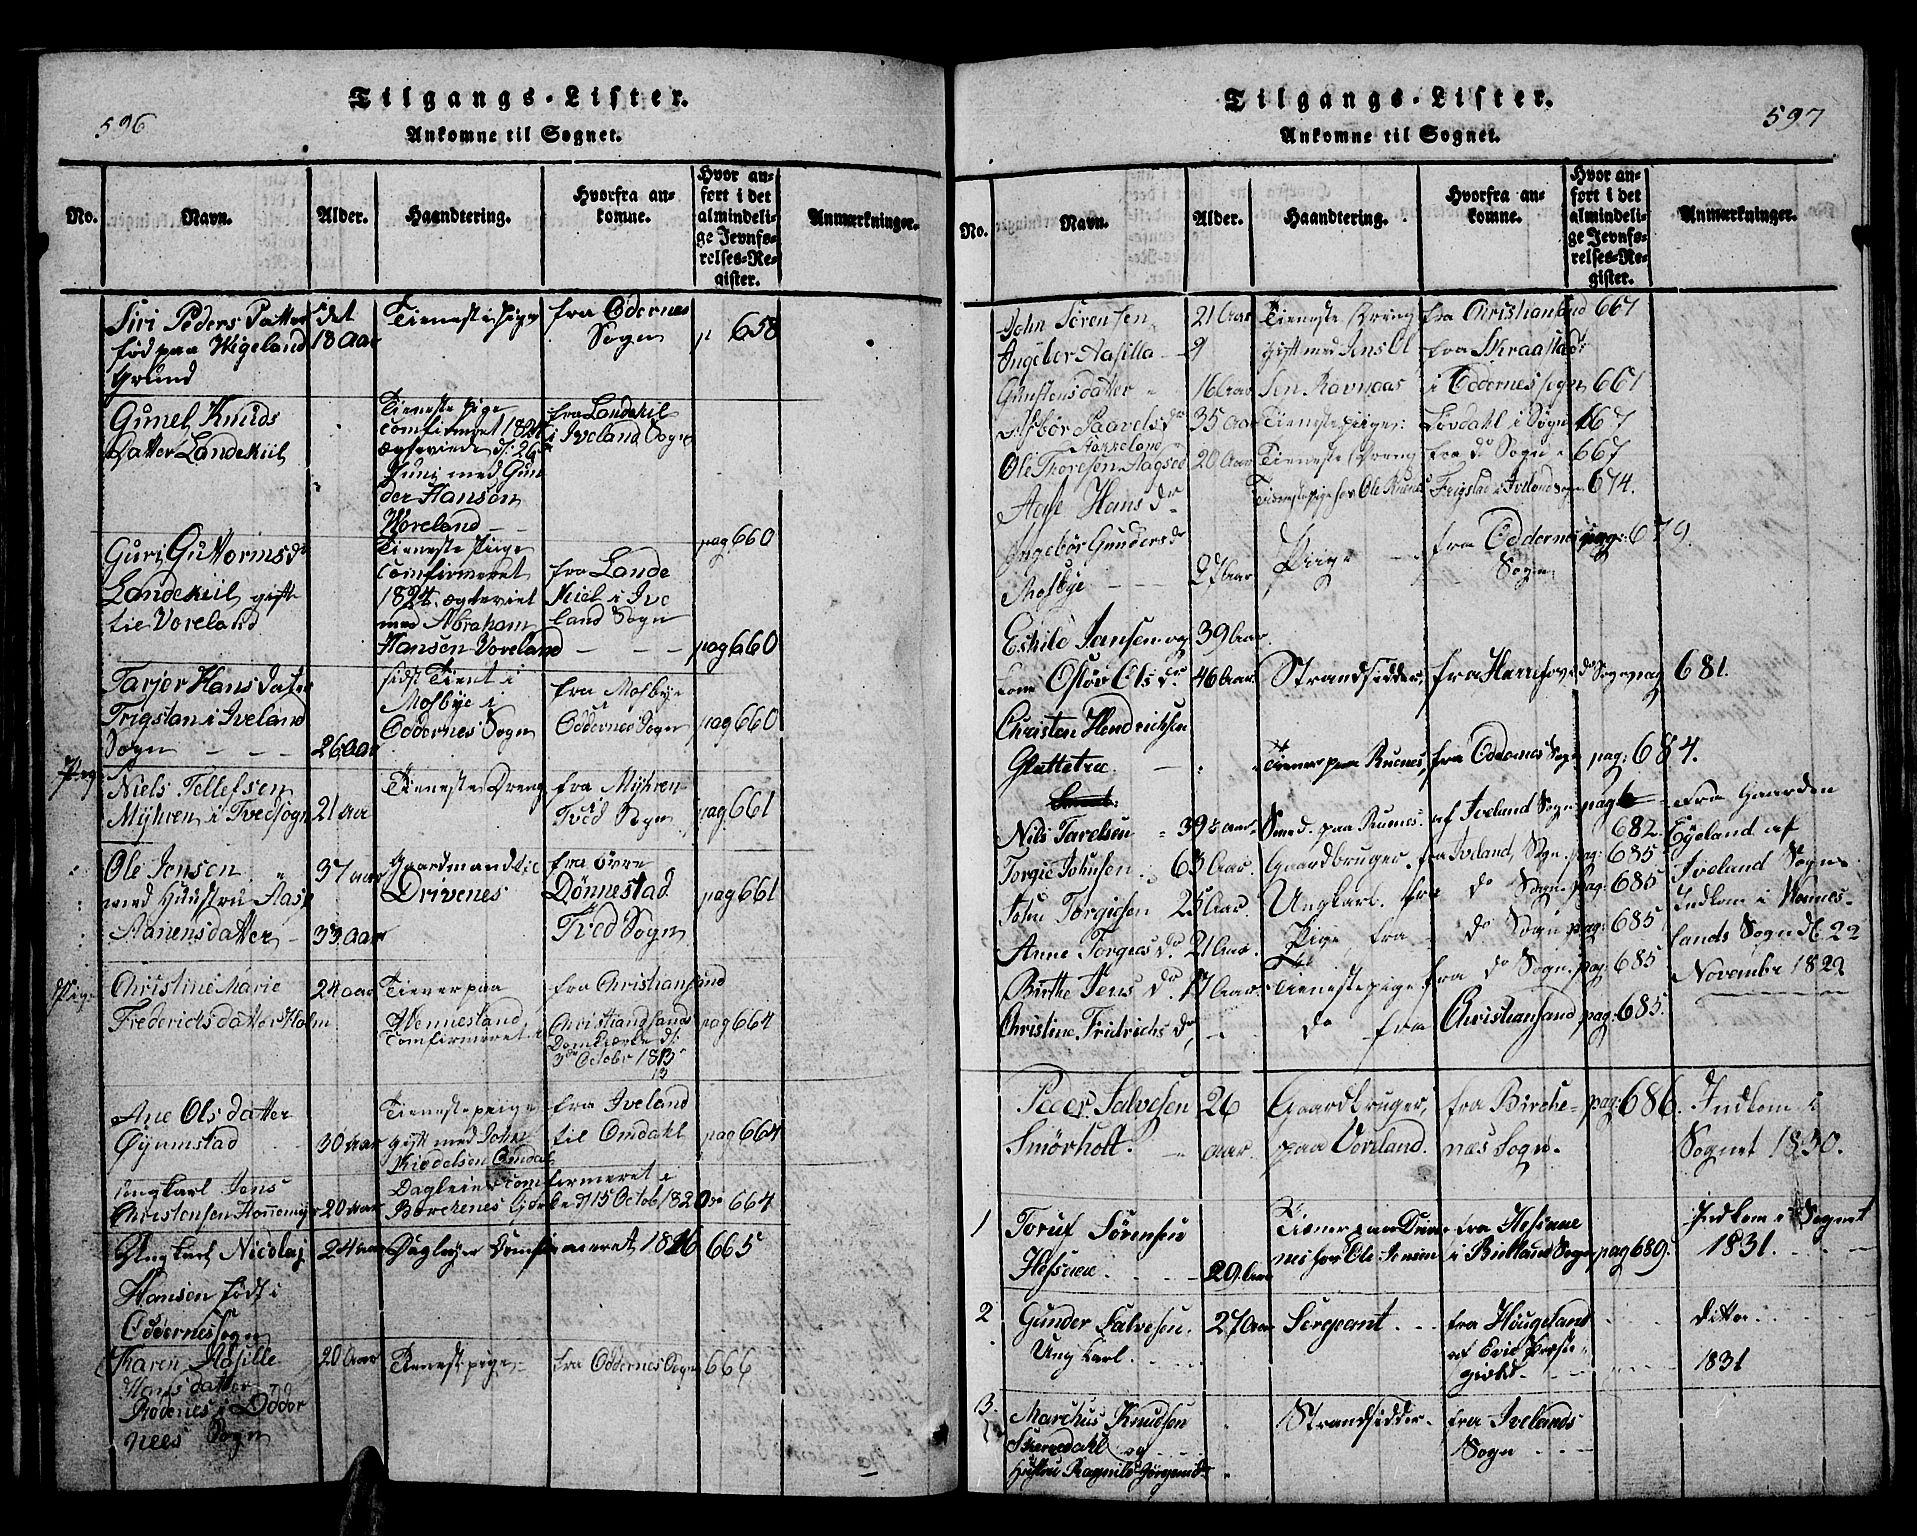 596
Tilgangs-Lister.
Ankomne til Sognet.
No.
Navn.
Alder.
Haandtering.
Hvorfra an-
komne.
Hvor an-
ført i det
almindeli-
ge Jevnfø-
relses-Re-
gister.
Anmærkninger.
Siri Peders Datter
født paa Wigeland
Grund
18 Aar
Tieneste Pige
fra Oddernes
Sogn
p 658
Gunel Knuds
Datter Landekiil
Tieneste Pige
comfirmeret 1824
ægteviede d: 26
Juni med Gun
der Hansen
Woreland
fra Landekil
i Iveland Sogn
pag 660
Guri Guttorms dr
Landekiil gift
til Voreland
Tieneste Piige
comfirmeret
1824. ægteviet
med Abraham
Hansen Voreland
fra Lande
kiel i Ive
land Sogn
pag 660
Tarjer Hans Datter
Frigstan i Iveland
Sogn
26 Aar
sidst Tient i
Mosbye i
Oddernes Sogn
fra Mosbye
Oddernes Sogn
pag 660
Niels Tellefsen
Myhren i Tved Sogn
21 Aar
Tieneste Dreng
fra Myhren
Tved Sogn
pag 661
Ole Jensen
med Hustru Aase
Aanensdatter
37 aar
33 Aar
Gaardmand til
Drivenes
fra øvre
Dønnestad
Tved Sogn
pag 661
Christine Marie
Frederichsdatter Holm
24 aar
Tiener paa
Wennesland
Comfirmeret i
fra Christiansand
Christiandsands
Domkierke d:
3de October 1813
pag 664
Ane Ols datter
Gynnestad
30 aar
Tienestepeige
gift med John
Kiddelsen Omdal
fra Iveland
til Omdahl
pag 664
Ungkarl Jens
Christensen Honnemyr
20 aar
Dagleier comfirmeret i
Berchenes Kirke d 15 Octob 1820
do 664
Ungkarl Nicolaj
Hansen født i
Oddernes Sogn
24 aar
Dagleyer Comfirmeret, 1826
665
Karen Aasille
Hans datter
Rodenes i Odder
nees Sogn
20 Aar
Tienestepige
fra Oddernes Sogn
666
597
Tilgangs-Lister.
Ankomne til Sognet.
No.
Navn.
Alder.
Haandtering.
Hvorfra an-
komne.
Hvor an-
ført i det
almindeli-
ge Jevnfø-
relses-Re-
gister.
Anmærkninger.
John Sørensen
21 Aar
Tieneste Dreng
fra Christiansand
667
Ingebor Aasilla
Gunstensdatter
16 Aar
gift med Jens Ol
sen Ravnaas
fra Skraastad
i Oddernes sogn
661
Asbør Paavels dr
35 Aar
Tienestepiige
Lovdahl i Søgne
667
Ole Thoresen Aagsed
20 Aar
Tieneste Dreng
fra do Sogn
667
Aase Hans dr
Tienestepige hos Ole Ruenes
Frigstad i Iveland Sogn
674.
Ingebør Gunders dr
Mosbye
27 Aar
Piige
fra Oddernes
Sogn
pag: 679.
Eskild Jansen og
39 Aar.
Kone Osløv Ols dr
46 Aar.
Strandsidder,
fra Herrefos do Sogn
pag 681.
Christen Hendrichsen
Glattetræ
Tiener paa Ruenes,
fra Oddernes Sogn
pag: 684.
Nils Tarelsen
39 1/2 Aar
Smed. paa Ruenes.
af Iveland Sogn
pag
682.
fra Gaarden
Egeland af
Iveland Sogn
Indkom i Wennes-
lands Sogn d. 22
November 1822
Torgie Johnsen
63 Aar.
Gaardbruger.
fra Iveland, Sogn.
pag: 685
John Torgiesen
25 Aar.
Ungkarl. fra
do Sogn.
pag: 685
Anne Torgies dr.
21 Aar.
Pige, fra
do Sogn
pag: 685
Birthe Jens dr.
17 Aar.
Tienestepige fra
do Sogn.
pag: 685
Christine Fridrichs dr,
do fra
Christiansand
pag: 685.
Peder Salvesen
Smørholt.
26
Aar.
Gaardbruger,
paa Voreland.
fra Birche-
næs Sogn.
pag: 686.
Indkom i
Sognet 1830.
1
Toruf Sørensen
Hofsaae
29. Aar
Tiener paa Drive
nes hos Ole Jensen
fra Hofsaae
i Birkland Sogn
pag 689.
Indkom i Sognet
1831.
2
Gunder Salvesen.
Ung karl.
27 Aar
Sergeant
fra Haugeland
af Evie Præste-
gield.
ditto
1831
3.
Marchus Knudsen
Skeredahl og
Hustru Ragnild Jørgens dr
Strandsidder.
fra Ivelands
Sogn